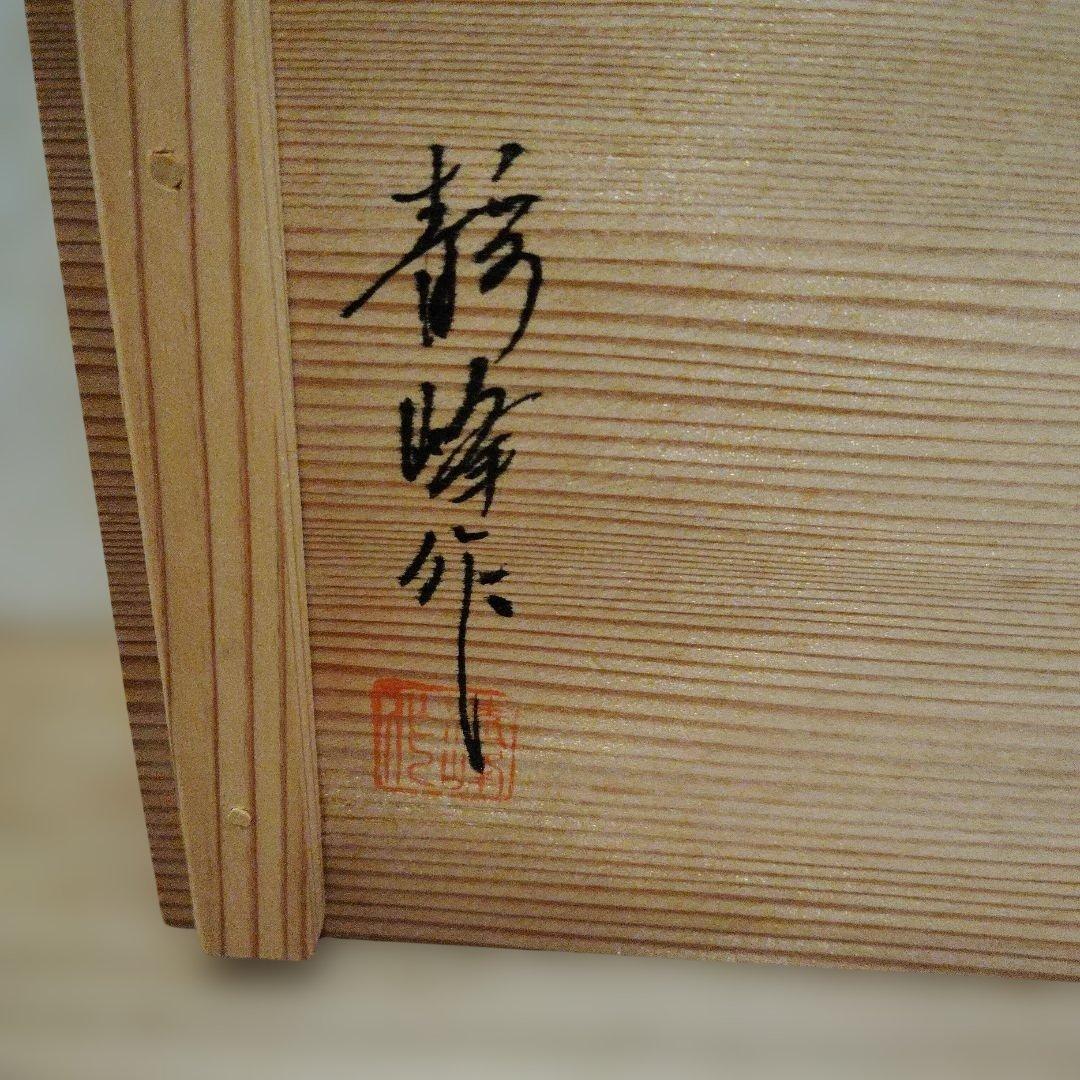 静峰作